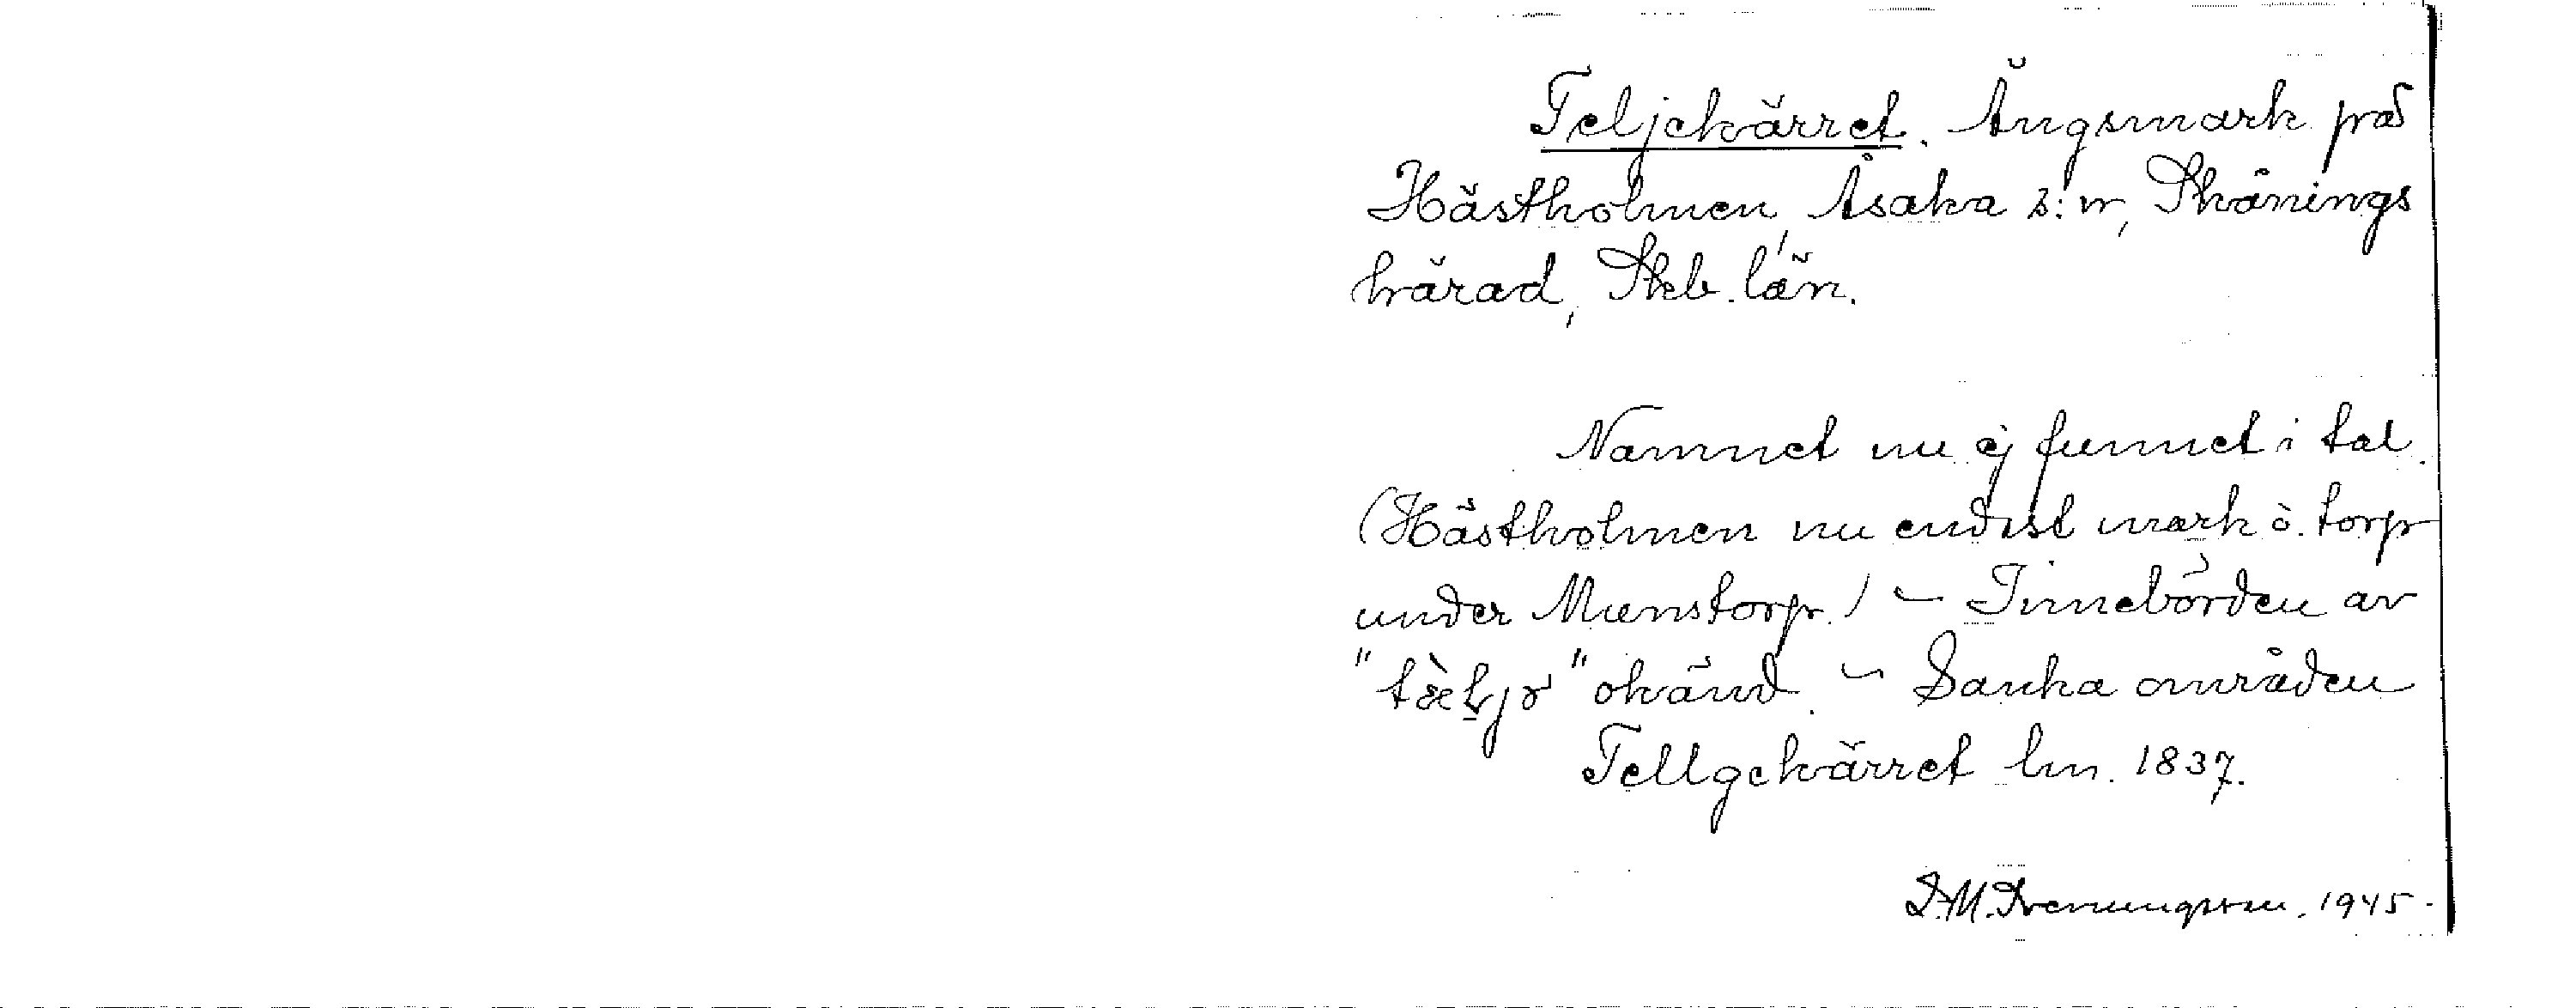 Teljekärret. Ängsmark på
Hästholmen, Åsaka s:n, Skånings
härad, Skb. län.
Namnet nu ej funnet i tal.
(Hästholmen nu endast mark o. torp
under Munstorp.) – Innebörden av
"okänd. – Sanka områden
Tellgekärret lm. 1837.
1945.